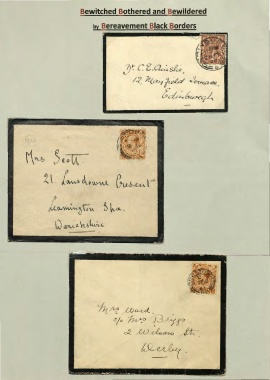 Bewitched Bothered and Bewildered
by Bereavement Black Borders
Dr. C. E. Ainslie,
12, Mayfield Terrace,
Edinburgh
Mrs Scott
21 Lansdowne Crescent
Leamington Spa
Warwickshire
Mrs Ward.
c/o Mrs Briggs
2 Wilson St.
Derby.